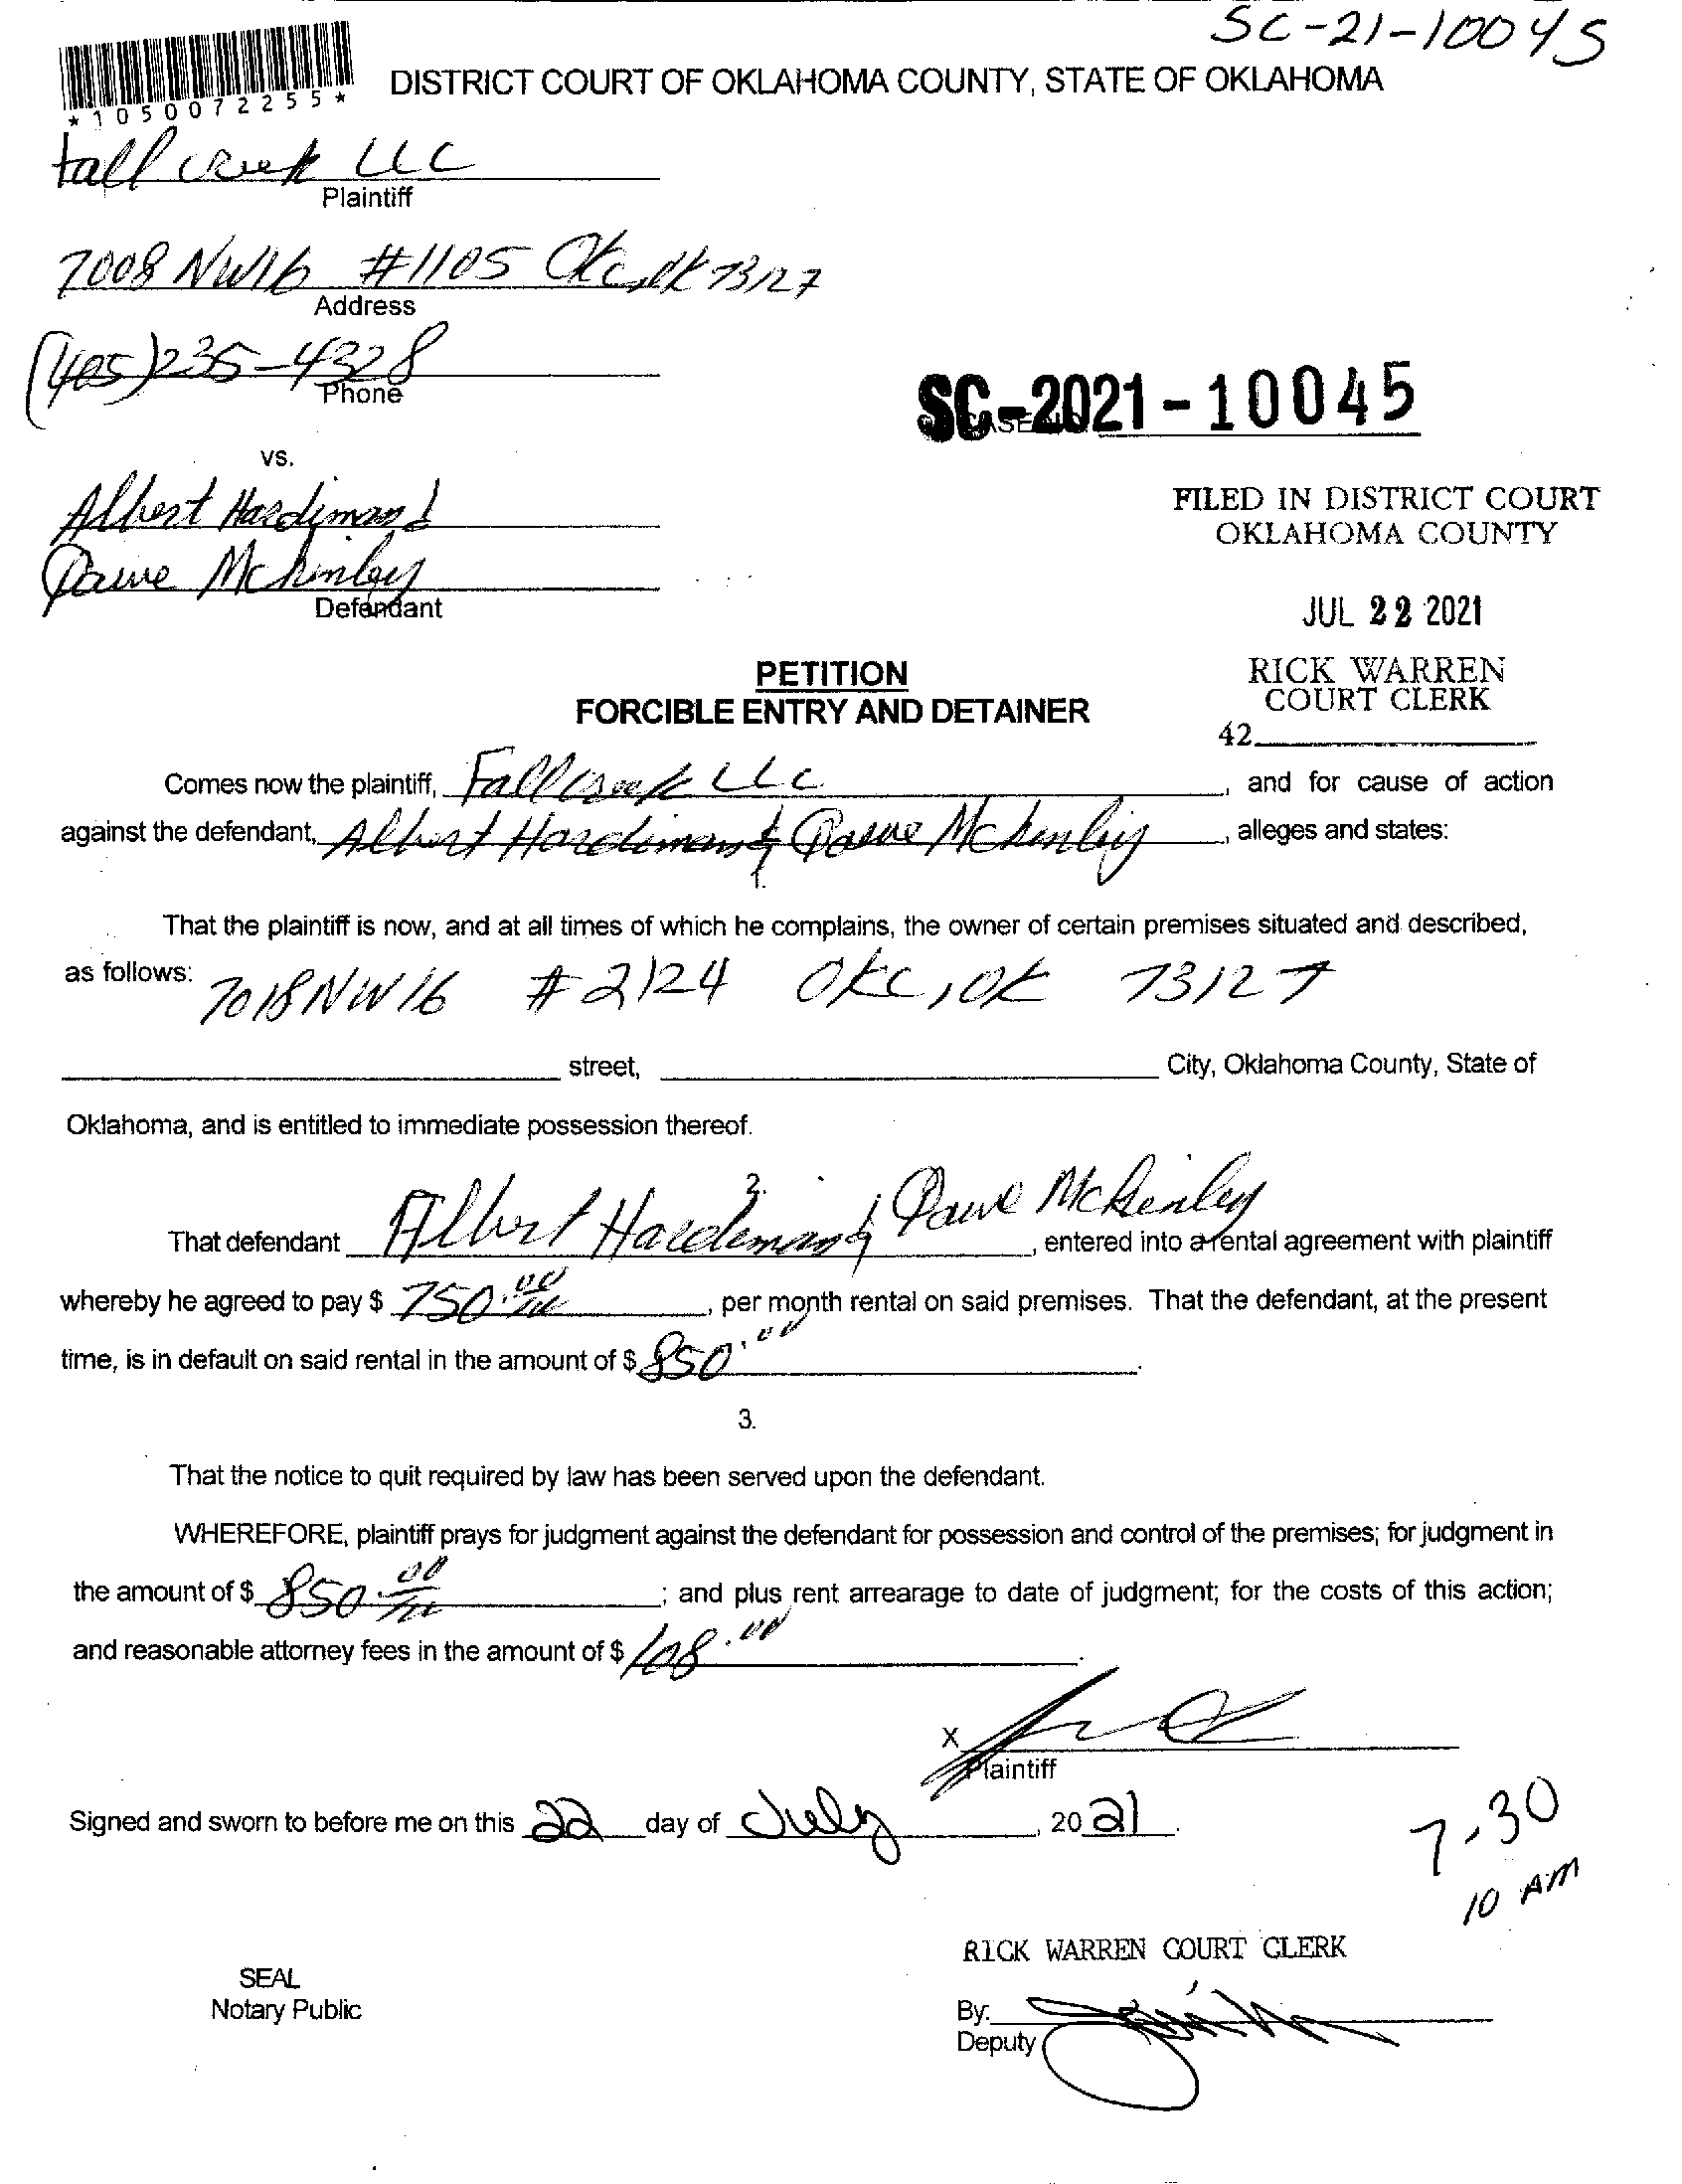 SC-21-10045
*1050072255*
DISTRICT COURT OF OKLAHOMA COUNTY, STATE OF OKLAHOMA
Fall Creek LLC
Plaintiff
7008 NW16 #1105 OKC, OK 73127
Address
(405)235-4328
Phone
SC-2021-10045
vs.
Albert Hardiman &
McKinley
Defendant
FILED IN DISTRICT COURT
OKLAHOMA COUNTY
JUL 22 2021
RICK WARREN
COURT CLERK
42
PETITION
FORCIBLE ENTRY AND DETAINER
Comes now the plaintiff, Fall Creek LLC, and for cause of action
against the defendant, Albert Hardiman & McKinley, alleges and states:
1.
That the plaintiff is now, and at all times of which he complains, the owner of certain premises situated and described,
as follows: 7018 NW 16 #2124 OKC, OK 73127
street, City, Oklahoma County, State of
Oklahoma, and is entitled to immediate possession thereof.
2.
That defendant Albert Hardeman & McKinley, entered into a rental agreement with plaintiff
whereby he agreed to pay $ 750.00, per month rental on said premises. That the defendant, at the present
time, is in default on said rental in the amount of $ 850.00.
3.
That the notice to quit required by law has been served upon the defendant.
WHEREFORE, plaintiff prays for judgment against the defendant for possession and control of the premises; for judgment in
the amount of $ 850.00; and plus rent arrearage to date of judgment; for the costs of this action;
and reasonable attorney fees in the amount of $ 108.00.
X
Plaintiff
Signed and sworn to before me on this 22 day of July, 2021.
7-30
10 AM
RICK WARREN COURT CLERK
SEAL
Notary Public
By:
Deputy